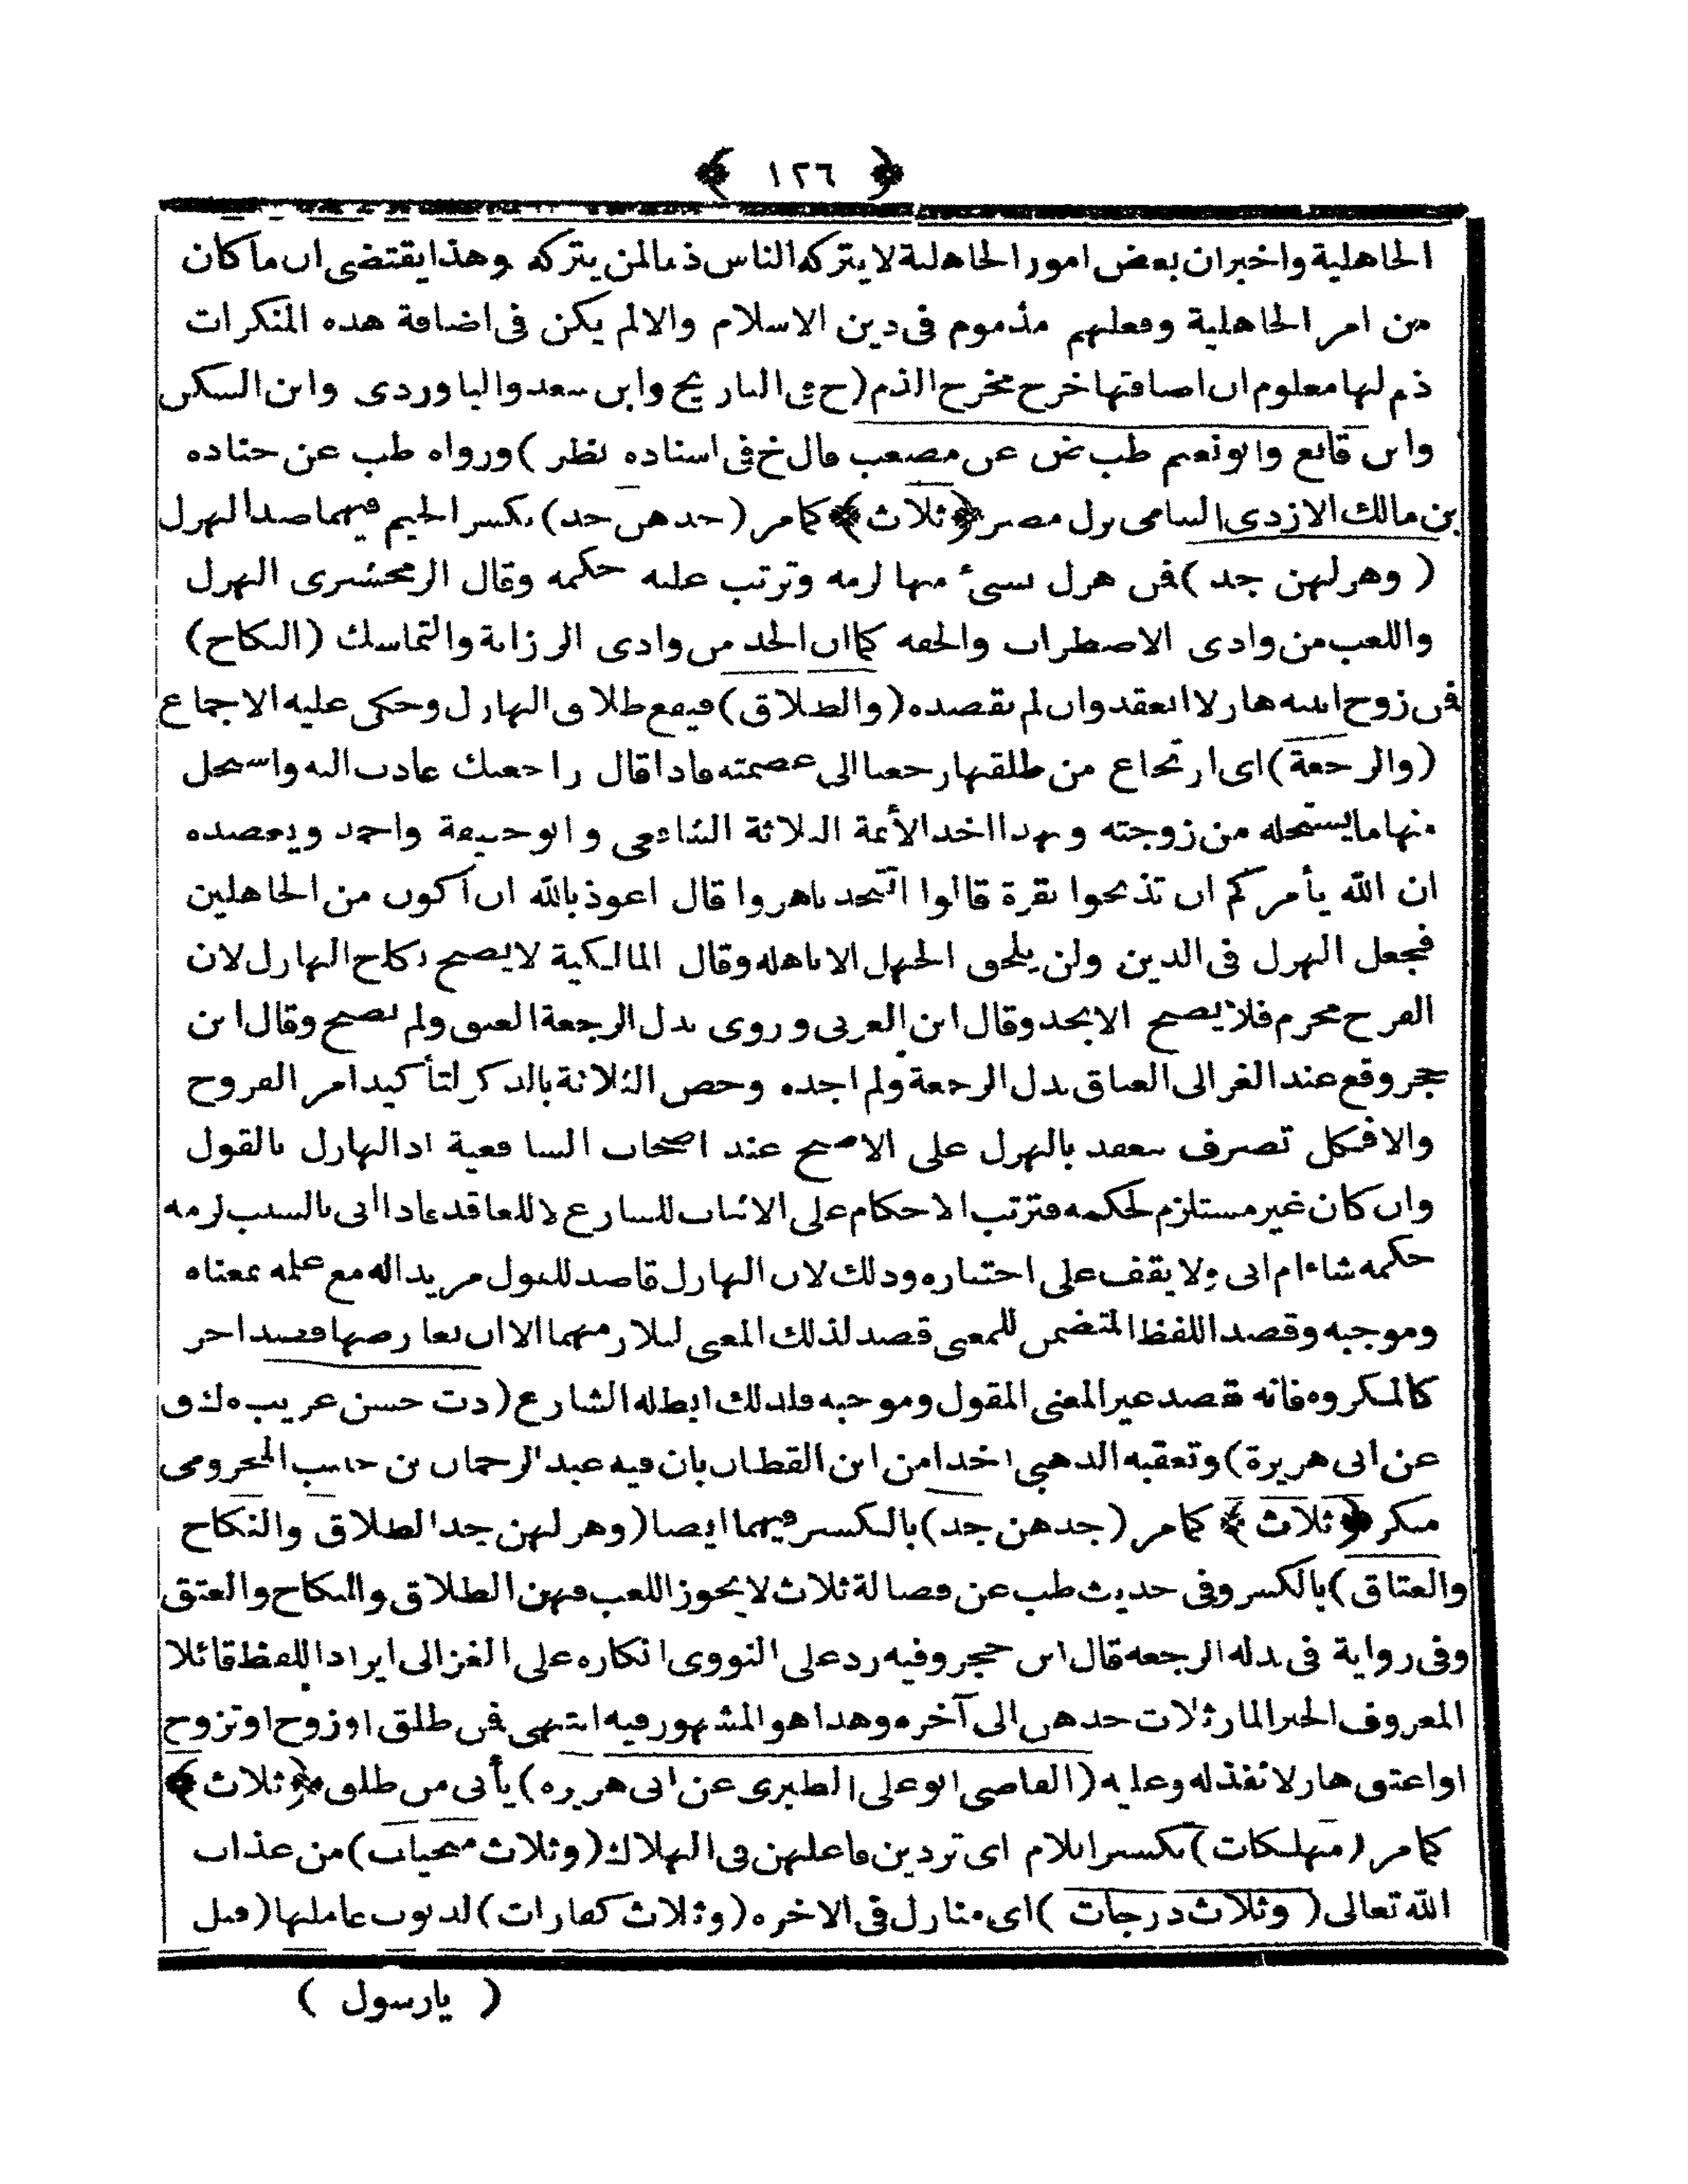 ﴿ ١٢٦ ﴾
الجاهلية واخبر ان بعض امور الجاهلية لا يتركه الناس ذما لمن يتركه وهذا يقتضى ان ما كان
من امر الجاهلية وفعلهم مذموم فى دين الاسلام والا لم يكن فى اضافة هذه المنكرات
ذم لها معلوم ان اضافتها خرج مخرج الذم (خ فى التاريخ وابن سعد والباوردى وابن السكن
وابن قانع وابو نعيم طب ض عن مصعب قال خ فى اسناده نظر) ورواه طب عن جناده
بن مالك الازدى الشامى نزل مصر ﴿ثلاث﴾ كما مر (جدهن جد) بكسر الجيم فيهما ضد الهزل
(وهزلهن جد) فمن هزل بشىء منها لزمه وترتب عليه حكمه وقال الزمخشرى الهزل
واللعب من وادى الاضطراب والخفه كما ان الجد من وادى الرزانة والتماسك (النكاح)
فمن زوج ابنته هازلا انعقد وان لم يقصده (والطلاق) فيقع طلاق الهازل وحكى عليه الاجماع
(والرجعة) اى ارتجاع من طلقها رجعيا الى عصمته فاذا قال راجعتك عادت اليه واستحل
منها ما يستحله من زوجته وبهذا اخذ الأئمة الثلاثة الشافعى وابو حنيفة واحمد ويعضده
ان الله يأمركم ان تذبحوا بقرة قالوا اتتخذنا هزوا قال اعوذ بالله ان اكون من الجاهلين
فجعل الهزل فى الدين ولن يلحق الجهل الا باهله وقال المالكية لا يصح نكاح الهازل لان
الفرج محرم فلا يصح الا بجد وقال ابن العربى وروى بدل الرجعة العتق ولم يصح وقال ابن
حجر وقع عند الغزالى العتاق بدل الرجعة ولم اجده وخص الثلاثة بالذكر لتأكيد امر الفروج
والا فكل تصرف ينعقد بالهزل على الاصح عند اصحاب الشافعية اذ الهازل بالقول
وان كان غير مستلزم لحكمه فترتب الاحكام على الاسباب للشارع لا للعاقد فاذا أتى بالسبب لزمه
حكمه شاء ام ابى ولا يقف على اختياره وذلك لان الهازل قاصد للقول مريد اله مع علمه بمعناه
وموجبه وقصد اللفظ المتضمن للمعنى قصد لذلك المعنى لتلازمهما الا ان يعارضها قصد اخر
كالمكروه فانه قصد غير المعنى المقول وموجبه فلذلك ابطله الشارع (دت حسن غريب ه ك ق
عن ابى هريرة) وتعقبه الذهبى اخذا من ابن القطان بان فيه عبد الرحمان بن حبيب المخزومى
منكر ﴿ثلاث﴾ كما مر (جدهن جد) بالكسر فيهما ايضا (وهزلهن جد الطلاق والنكاح
والعتاق) بالكسر وفى حديث طب عن فضالة ثلاث لا يجوز اللعب فيهن الطلاق والنكاح والعتق
وفى رواية فى بدله الرجعه قال ابن حجر وفيه رد على النووى انكاره على الغزالى ايراد اللفظ قائلا
المعروف الخبر المار ثلاث جدهن الى آخره وهذا هو المشهور فيه انتهى فمن طلق او زوج او تزوج
او اعتق هازلا نفذ له وعليه (القاضى ابو على الطبرى عن ابى هريره) يأتى من طلق ﴿ثلاث﴾
كما مر (مهلكات) بكسر اللام اى تردين فاعلهن فى الهلاك (وثلاث منجيات) من عذاب
الله تعالى (وثلاث درجات) اى منازل فى الاخره (وثلاث كفارات) لذنوب عاملها (قيل
( يارسول )